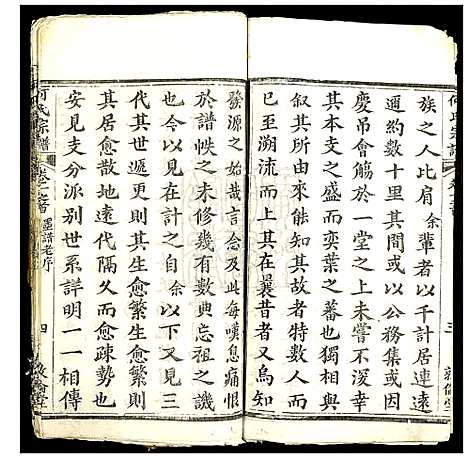 何氏宗譜
族之人比肩余輩者以千計居連遠
邇約數十里其間或以公務集或因
慶吊會觴於一堂之上未嘗不湲幸
其本支之盛而奕葉之蕃也獨相與
言其所由來能知其故者特數人而
已至溯流而上在曩昔者又烏知
三
發源之始哉言念及此每嘆息痛恨
於譜帙之未修幾有數典忘祖之譏
也今以見在計之自余以下又見三
代其世遞更則其生愈繁生愈繁則
其居愈散地遠代隔久而愈疎勢也
安見支分派別世系詳明一一相傳
何氏宗譜
卷之首
墨譜老序
四